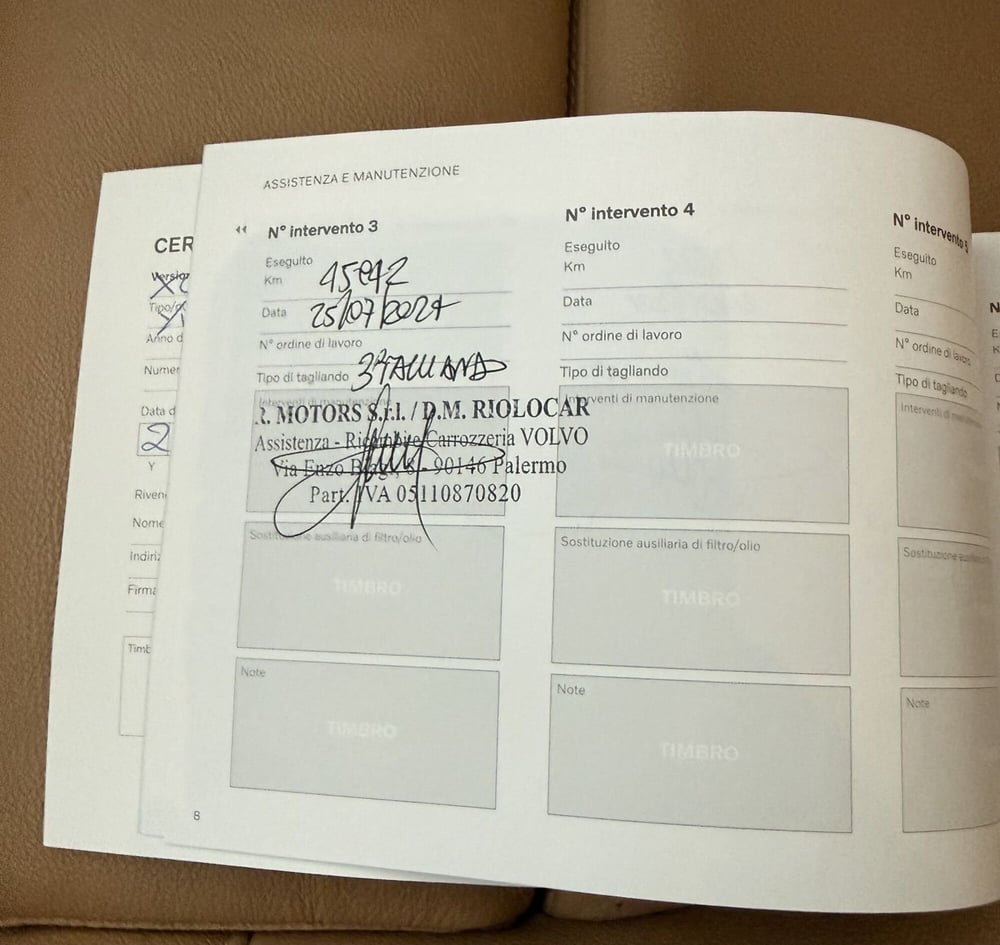 ASSISTENZA E MANUTENZIONE
N° intervento 3
Eseguito
Km
Data 25/07/2024
N° ordine di lavoro
Tipo di tagliando 3°
Interventi di manutenzione
R. MOTORS S.r.l. / D.M. RIOLOCAR
Assistenza - Ricambi e Carrozzeria VOLVO
Via Enzo Biagi, 6 - 90146 Palermo
Part. IVA 05110870820
Sostituzione ausiliaria di filtro/olio
TIMBRO
Note
TIMBRO
8
N° intervento 4
Eseguito
Km
Data
N° ordine di lavoro
Tipo di tagliando
Interventi di manutenzione
TIMBRO
Sostituzione ausiliaria di filtro/olio
TIMBRO
Note
TIMBRO
N° intervento 5
Eseguito
Km
Data
N° ordine di lavoro
Tipo di tagliando
Interventi di
Sostituzione
Note
CER
Version
Tipo/
Anno d
Numer
Data d
2
Y
Riven
Nome
Indiriz
Firma
Timb